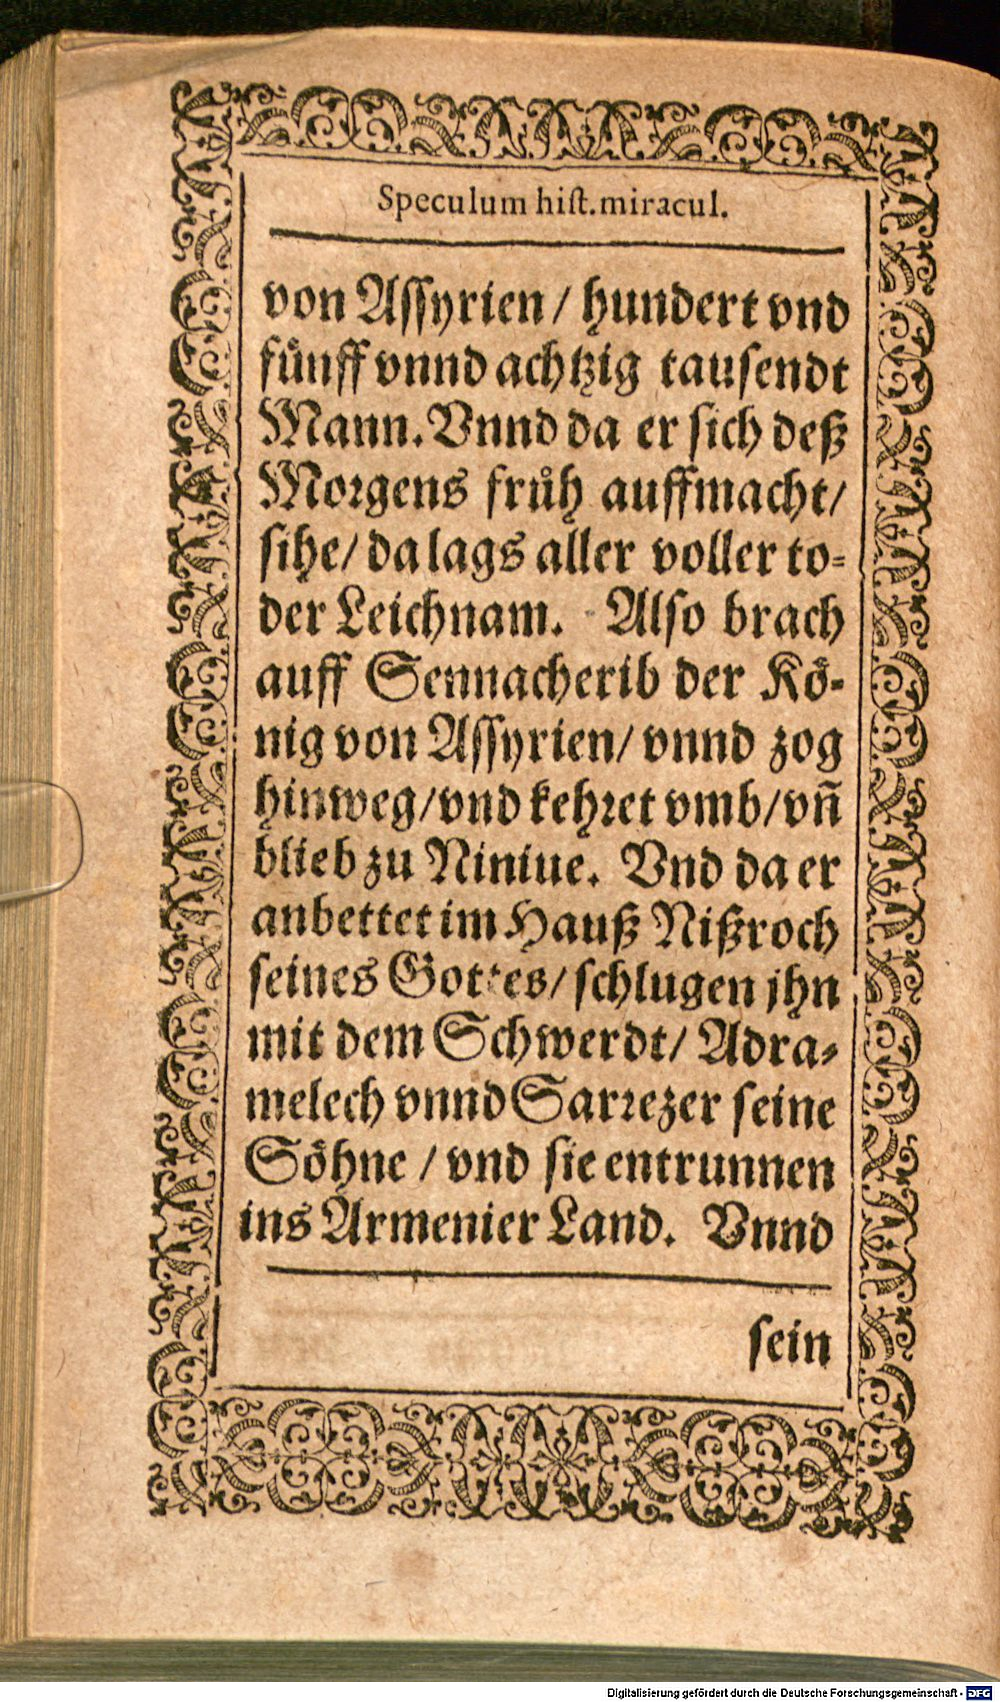 Speculum hist. miracul.
von Assyrien / hundert vnd
fünff vnnd achtzig tausendt
Mann. Vnnd da er sich deß
Morgens früh auffmacht/
sihe/ da lags aller voller to⸗
der Leichnam. Also brach
auff Sennacherib der Kö⸗
nig von Assyrien/ vnnd zog
hinweg/ vnd kehret vmb/ vñ
blieb zu Niniue. Vnd da er
anbettet im Hauß Nißroch
seines Gottes/ schlugen jhn
mit dem Schwerdt/ Adra⸗
melech vnnd Sarrezer seine
Söhne / vnd sie entrunnen
ins Armenier Land. Vnnd
sein
Digitalisierung gefördert durch die Deutsche Forschungsgemeinschaft - DFG